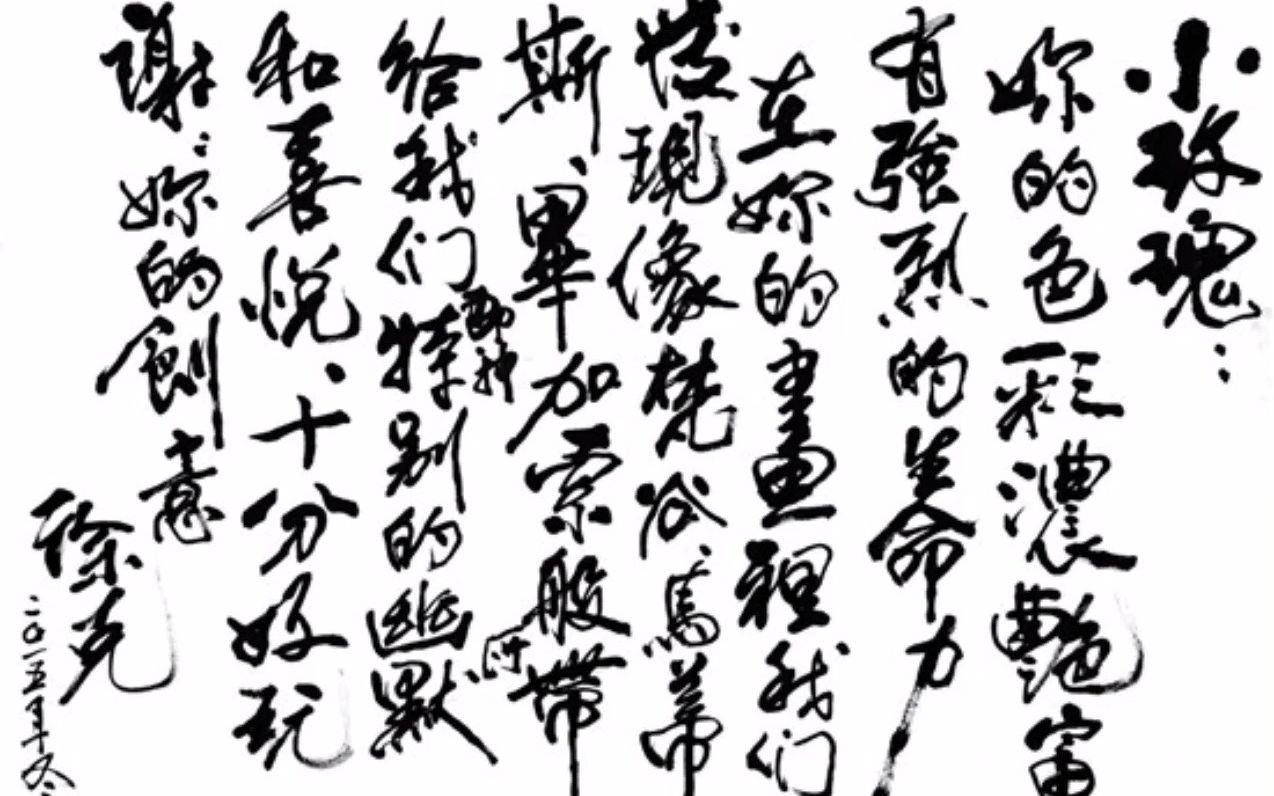 小玫瑰：
妳的色彩濃艷富
有強烈的生命力
在妳的畫裡我們
發現像梵谷、馬蒂
斯、畢加索般所帶
給我们那种特别的幽默
和喜悅、十分好玩
謝謝妳的創意
徐克
二〇一五年冬